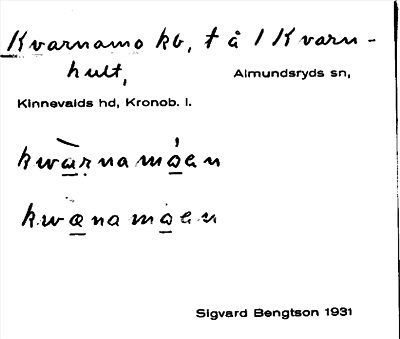 Kvarnamo kb, t å 1 Kvarn-
hult, Almundsryds sn,
Kinnevalds hd, Kronob. l.
kwàrnamóen
kwænamoen
Sigvard Bengtson 1931